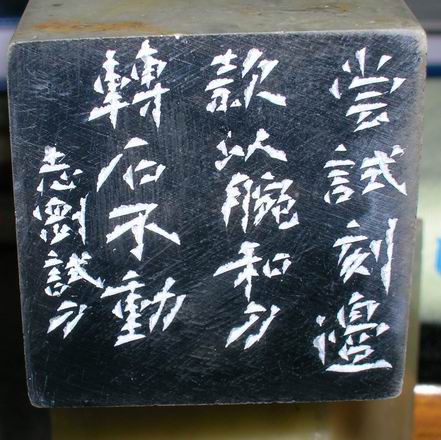 尝試刻邊
款以腕和刀
轉石不動
志剛試刀